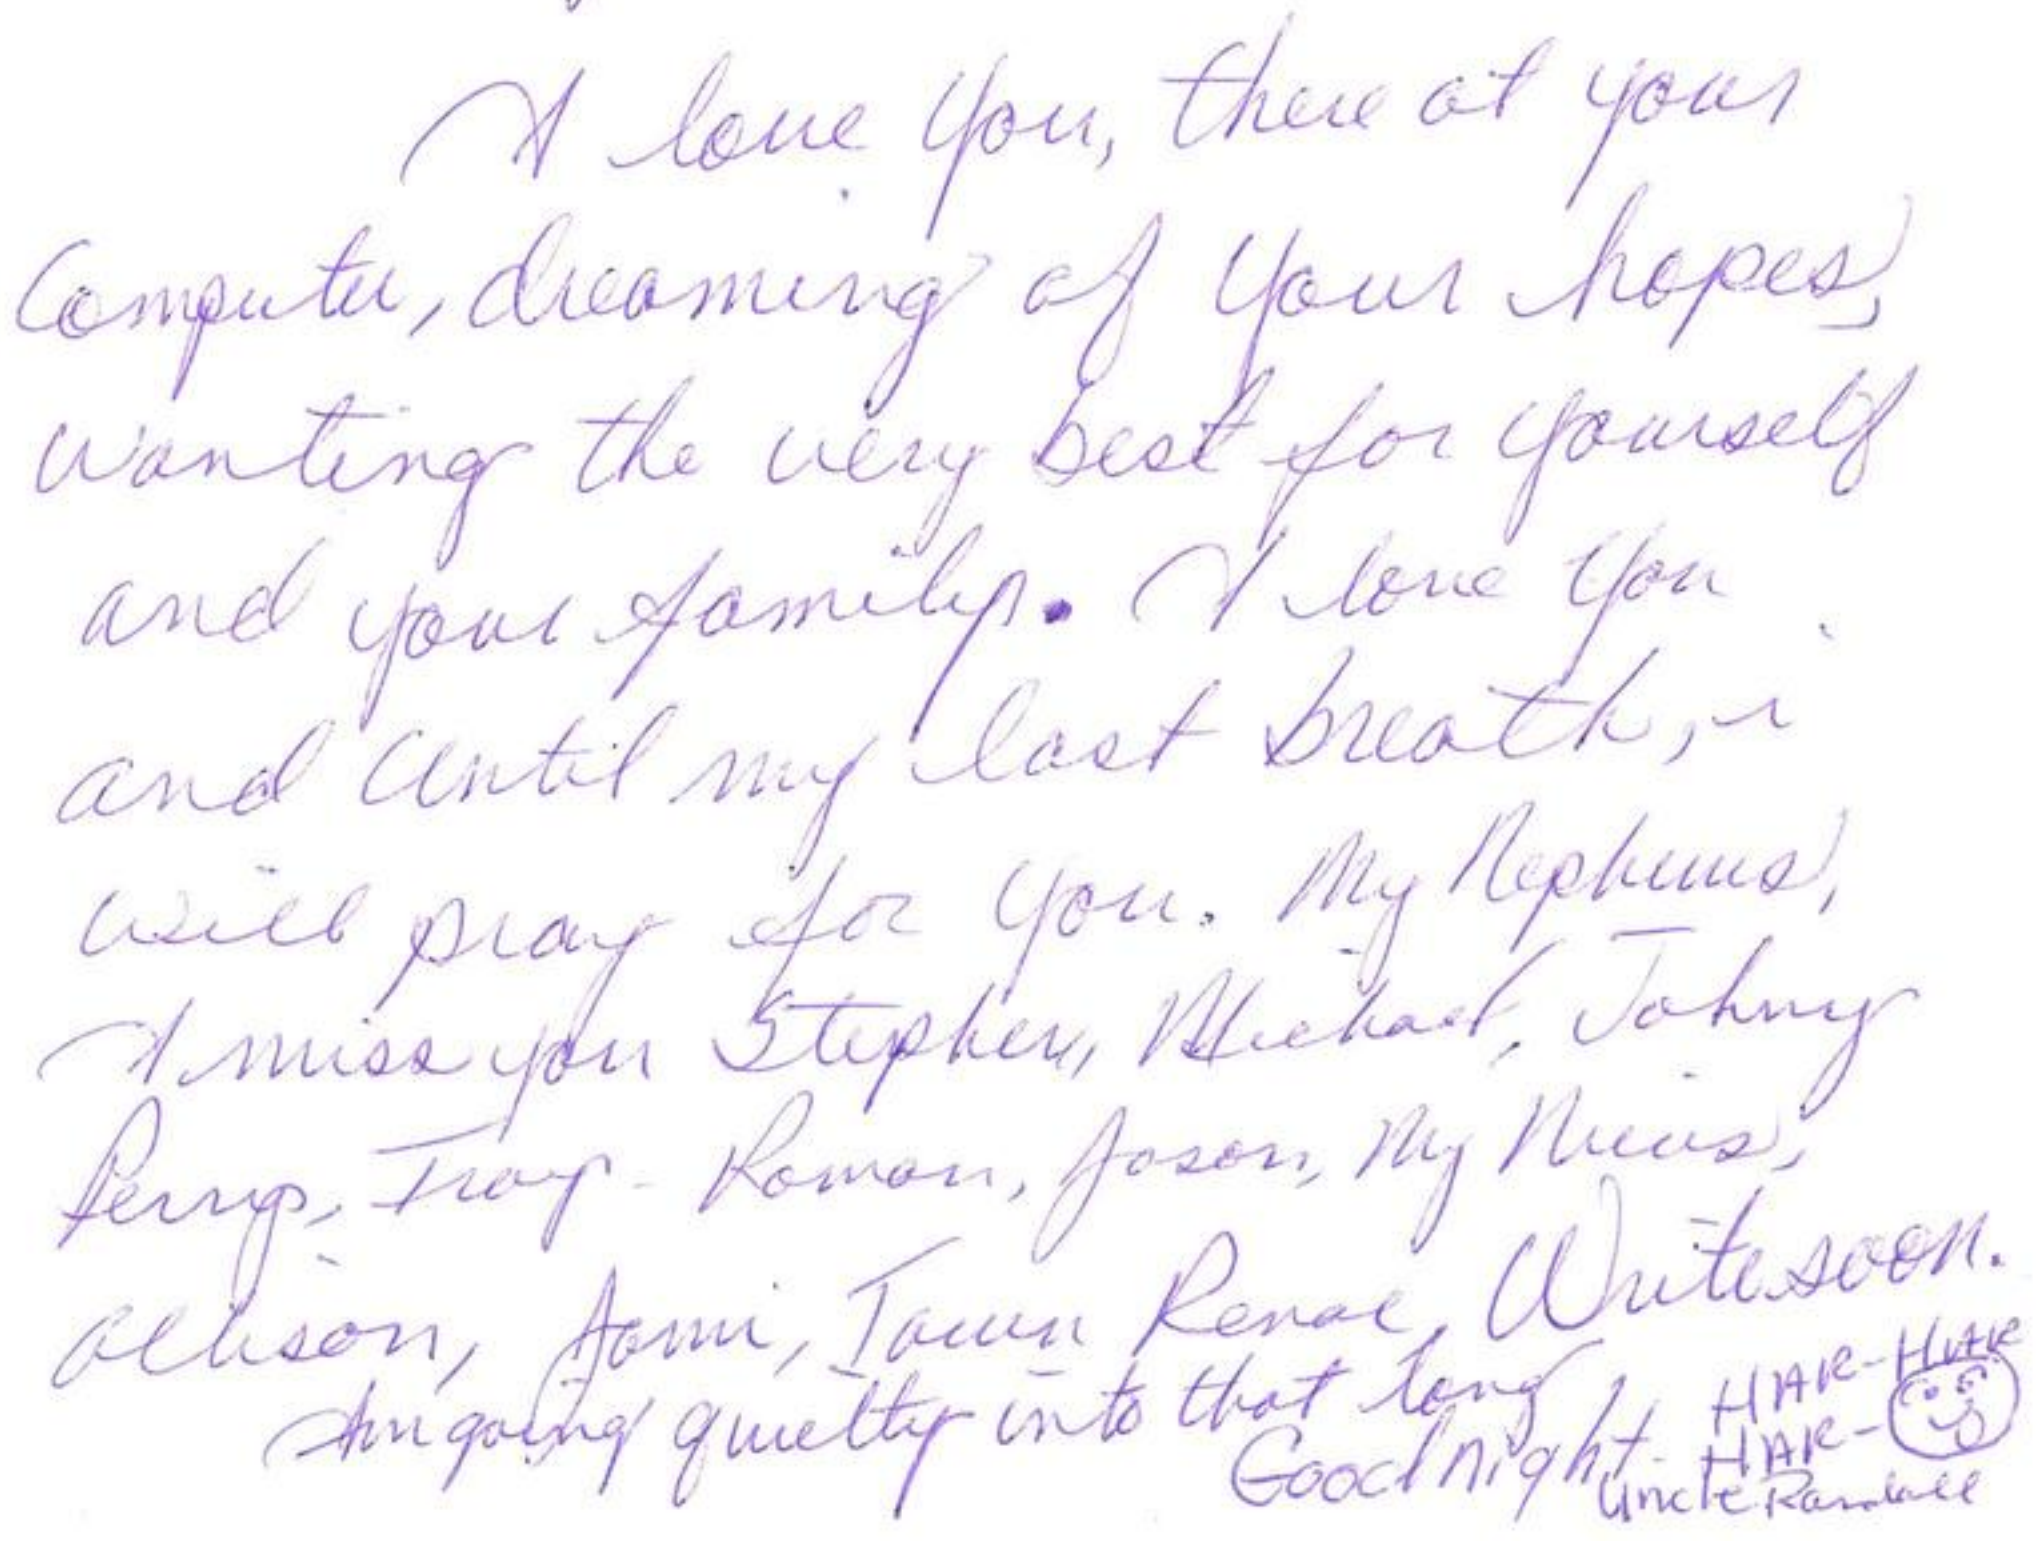 I love you, there at your
Computer, dreaming of your hopes,
wanting the very best for yourself
and your family. I love you
and until my last breath, i
will pray for you. My Nephews,
I miss you Stephen, Michael, Johny
Perry, Troy - Roman, Jason, My Nieces,
Allison, Jami, Renae, Write soon.
Am going quietly into that long
Good night. HAR-HAR
HAR-
Uncle Randall